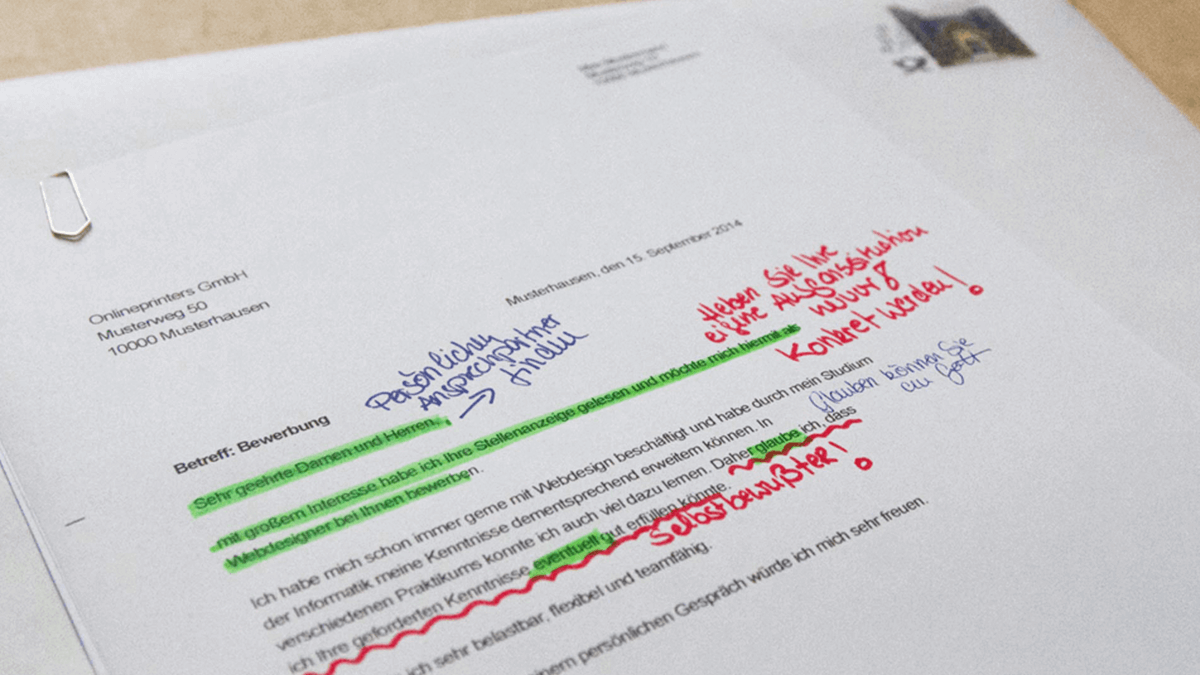 Onlineprinters GmbH
Musterweg 50
10000 Musterhausen
Musterhausen, den 15. September 2014
Persönlichen
Ansprechpartner
→ finden
Heben Sie Ihre
Konkret werden!
Betreff: Bewerbung
Sehr geehrte Damen und Herren,
mit großem Interesse habe ich Ihre Stellenanzeige gelesen und möchte mich hiermit als
Webdesigner bei Ihnen bewerben.
Glauben können Sie
an Gott
Ich habe mich schon immer gerne mit Webdesign beschäftigt und habe durch mein Studium
der Informatik meine Kenntnisse dementsprechend erweitern können. In
verschiedenen Praktikums konnte ich auch viel dazu lernen. Daher glaube ich, dass
ich Ihre geforderten Kenntnisse eventuell gut erfüllen könnte.
selbstbewußter!
ich sehr belastbar, flexibel und teamfähig.
persönlichen Gespräch würde ich mich sehr freuen.